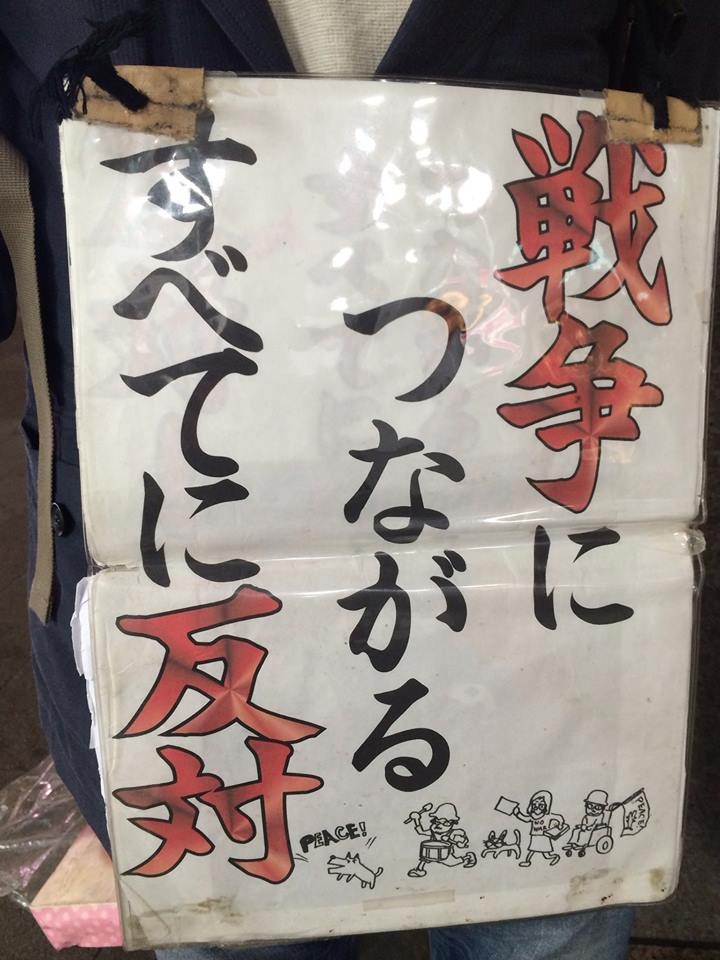 戦争に
つながる
すべてに反対
PEACE!
NO WAR
PEACE!